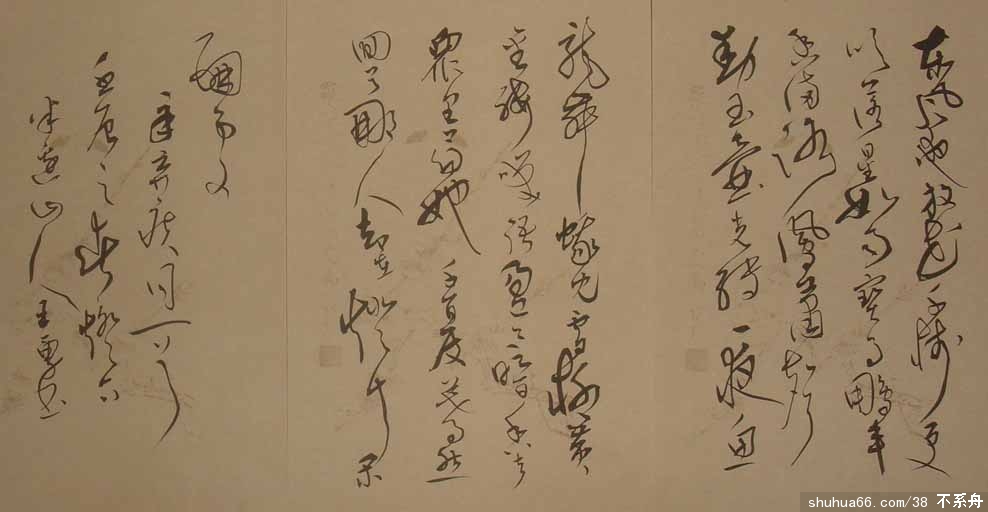 东风夜放花千树更
吹落星如雨宝马雕车
香满路凤箫声
动玉壶光转一夜鱼
龙舞蛾儿雪柳黄
金缕笑语盈盈暗香去
众里寻他千百度蓦然
回首那人却在灯火
珊处
辛弃疾词一首
之春
山人王书
shuhua66.com/38 不系舟